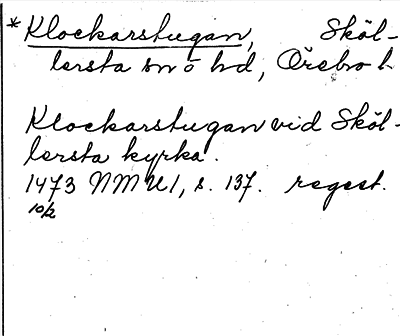 * Klockarstugan, Sköl-
lersta sn o hd, Örebro l.
Klockarstugan vid Sköl-
lersta kyrka.
1473 NMU1, s. 137. regest.
10/2